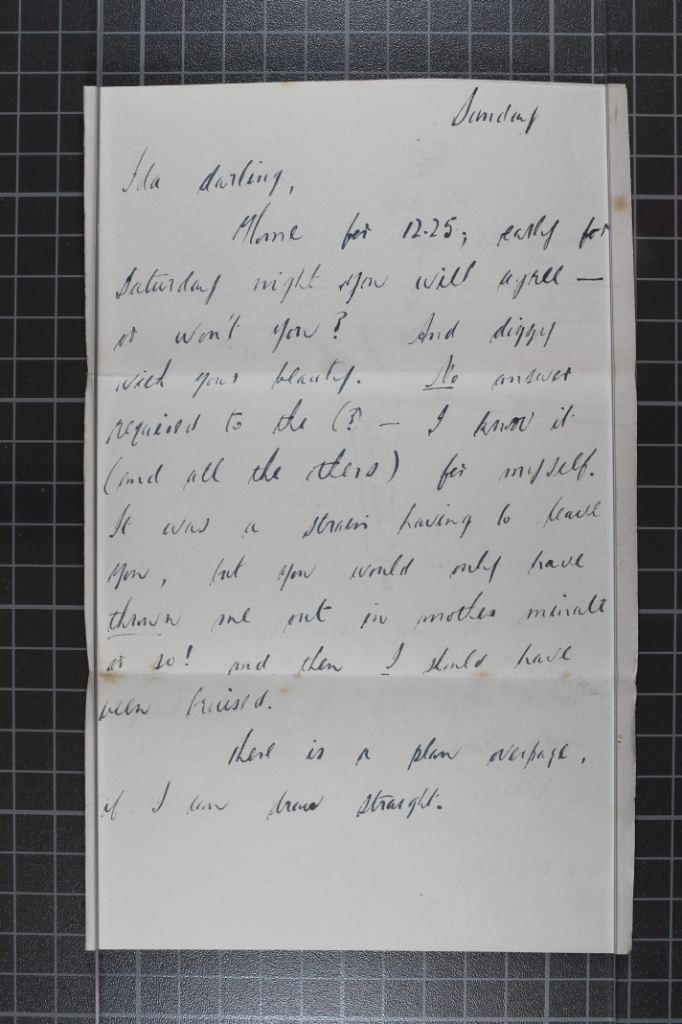 Sunday
Ida darling,
Home for 12.25; early for
Saturday night you will agree —
or won't you? And dizzy
with your beauty. No answer
required to the (?) — I know it
(and all the others) for myself.
It was a strain having to leave
you, but you would only have
thrown me out in another minute
or so! and then I should have
been bruised.
There is a plan overpage,
if I can draw straight.